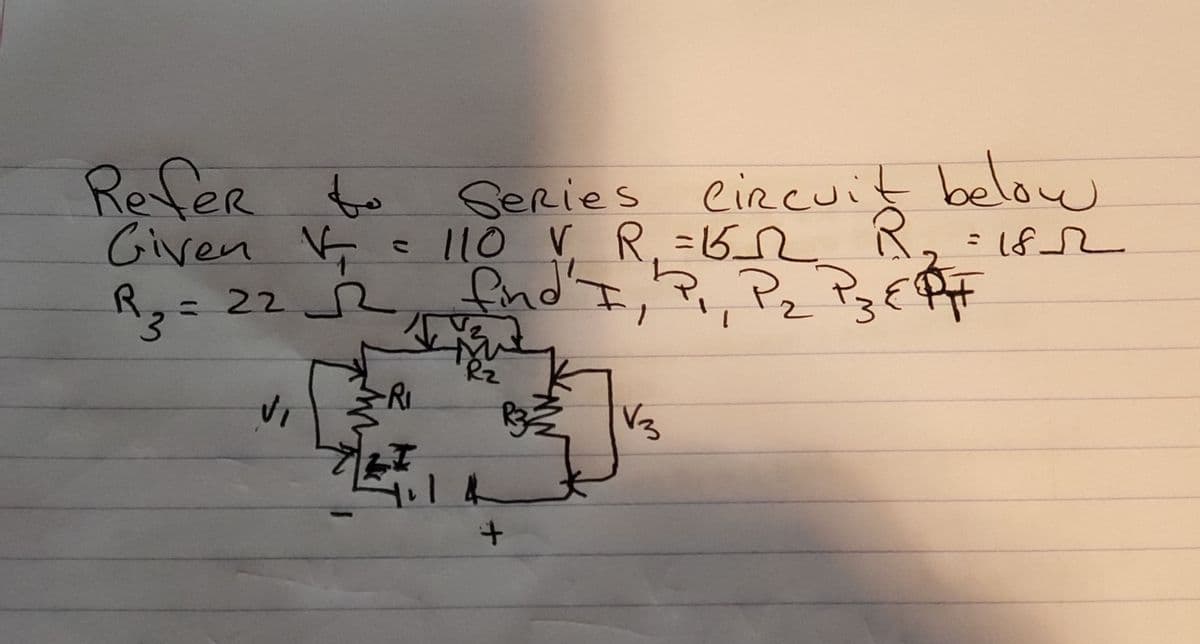 Refer to Series circuit below
Given V_T = 110 V, R₁ = 15 Ω R₂ = 18 Ω
R₃ = 22 Ω find I, P₁, P₂ P₃ & P_T
V₂
R₂
V₁
R₁
R₃
V₃
I
-
+